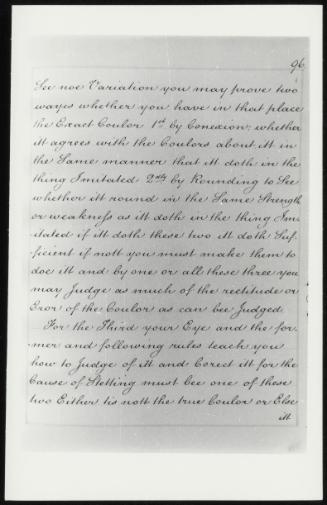 96
See noe Variation you may prove two
wayes whether you have in that place
the Exact Coulor 1st by Conexion; whether
itt agrees with the Coulors about itt in
the Same manner that itt doth in the
thing Imitated 2ndly by Rounding to See
whether itt round in the Same Strength
or weakness as itt doth in the thing Im
itated if itt doth these two itt doth Suf-
ficient if nott you must make them to
doe itt and by one or all those three you
may Judge as much of the rectitude or
Eror of the Coulor as can bee Judged
For the Third your Eye and the for-
mer and following rules teach you
how to Judge of itt and Corect itt for the
Cause of Stetting must bee one of these
two Either tis nott the true Coulor or Else
itt